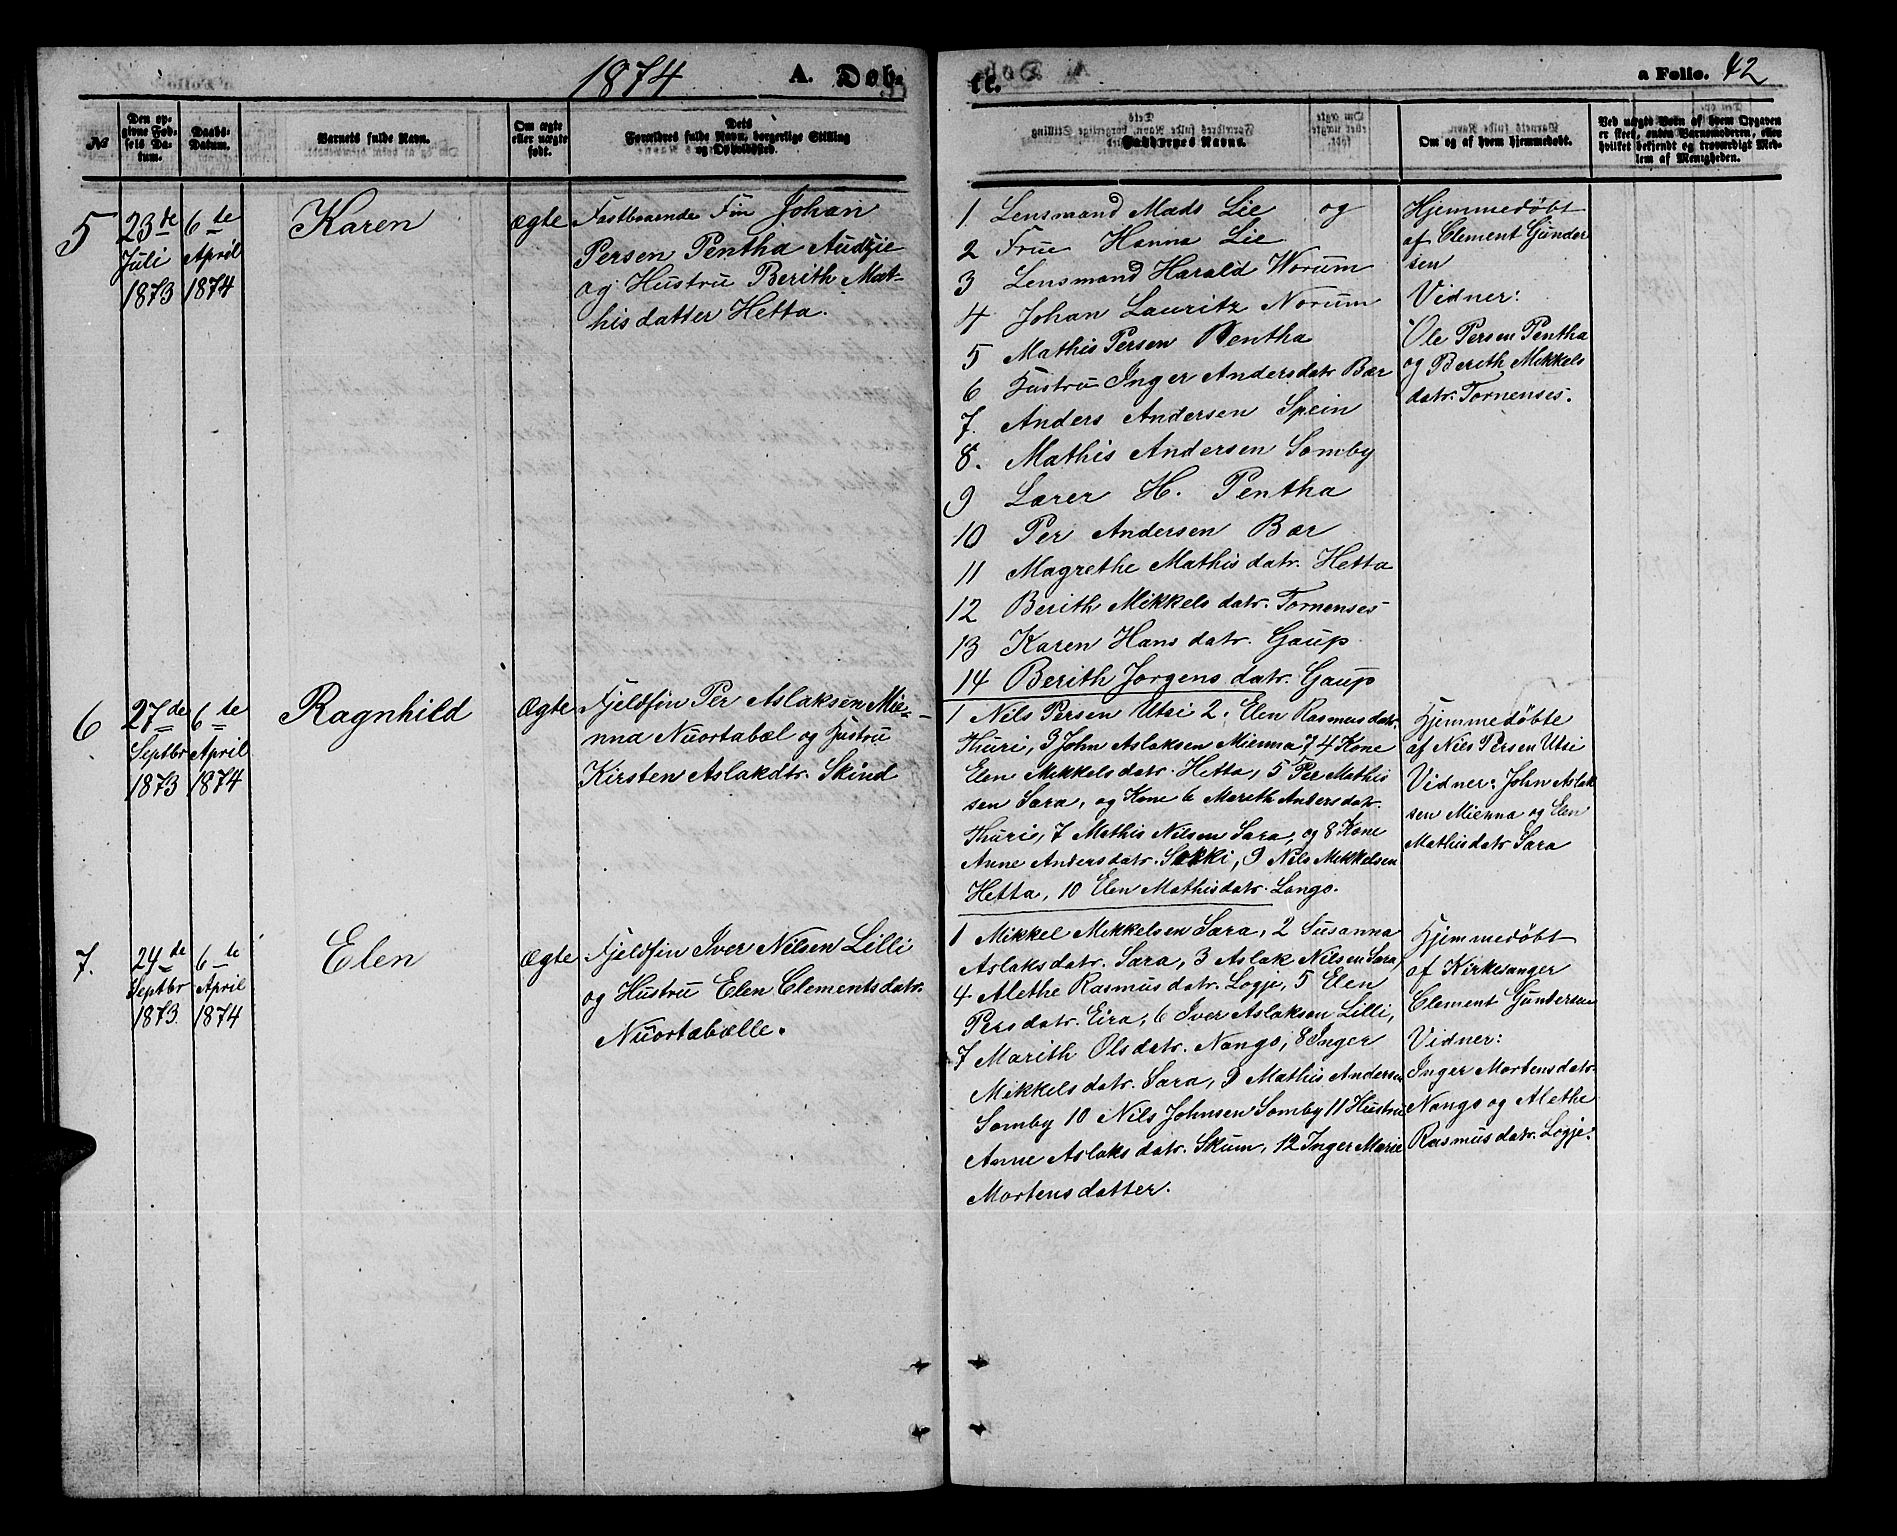 1874 A. Døb-
te. a Folio. 42
№
Den op-
givne Fød-
sels Da-
tum.
Daabs-
Datum.
Barnets fulde Navn.
Om ægte
eller uægte
født.
Dets
Forældres fulde Navn, borgerlige Stilling
og Opholdssted.
Faddernes Navne.
Om og af hvem hjemmedøbt.
Ved uægte Børn af hvem Opgaven
er skeet, enten Barnemoderen, eller
hvilket bekjendt og troværdigt Med-
lem af Menigheden.
5
23de
Juli
1873
6te
April
1874
Karen
ægte
Fastboarnde Fin Johan
Persen Pentha Audzie
og Hustru Berith Mat-
hisdatter Hetta.
1 Lensmand Mads Lie og
2 Frue Hanna Lie
3 Lensmand Harald Worum
4 Johan Lauritz Norum
5 Mathis Persen Pentha
6 Hustru Inger Andersdatr Bær
7. Anders Andersen Spein
8. Mathis Andersen Somby
9 Lærer H. Pentha
10 Per Andersen Bær
11 Magrethe Mathisdatr. Hetta
12 Berith Mikkelsdatr. Tornenses
13 Karen Hansdatr. Gaup
14 Berith Jørgensdatr. Gaup
Hjemmedøbt
af Clement Gunder
sen
Vidner:
Ole Persen Pentha
og Berith Mikkels
datr. Tornenses.
6
27de
Septbr
1873
6te
April
1874
Ragnhild
Ægte
Fjeldfin Per Aslaksen Mie-
nna Nuortabæl og Hustru
Kirsten Aslakdtr. Skind
1 Nils Persen Utsi 2. Elen Rasmusdatr.
Thuri, 3 John Aslaksen Mienna, 4 Kone
Elen Mikkelsdatr. Hetta, 5 Per Mathis
sen Sara, og Kone 6 Marith Andersdatr.
Thuri, 7 Mathis Nilsen Sara, og 8 Kone
Anne Andersdatr. Sokki, 9 Nils Mikkelsen
Hetta, 10 Elen Mathisdatr. Lango.
Hjemmedøbte
af Nils Persen Utsi
Vidner: John Aslak
sen Mienna og Elen
Mathisdatr Sara
7.
24de
Septbr
1873.
6te
April
1874
Elen
Ægte
Fjeldfin Iver Nilsen Lilli
og Hustru Elen Clementsdatr.
Nuortabælle.
1 Mikkel Mikkelsen Sara, 2 Susanna
Aslaksdatr. Sara, 3 Aslak Nilsen Sara,
4 Alethe Rasmusdatr. Logje, 5 Elen
Persdatr. Eira, 6 Iver Aslaksen Lilli,
7 Marith Olsdatr. Nango, 8 Inger
Mikkelsdatr. Sara, 9 Mathis Andersen
Somby 10 Nils Johnsen Somby 11 Hustru
Anne Aslaksdatr. Skum, 12 Inger Marie
Mortensdatter.
Hjemmedøbt
af Kirkesanger
Clement Gundersen
Vidner:
Inger Mortensdatr.
Nango og Alethe
Rasmusdatr. Logje.